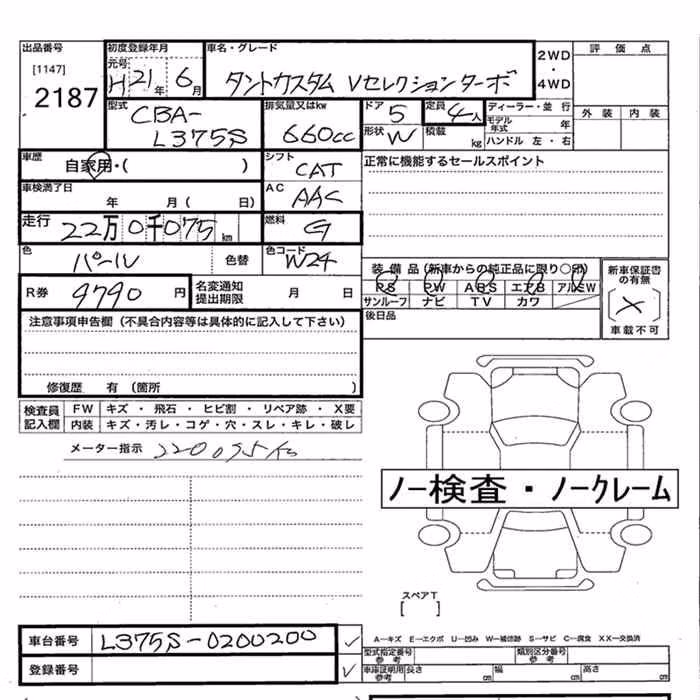 出品番号
[1147]
2187
初度登録年月
元号
H 21 年 6 月
車名・グレード
タントカスタム Vセレクションターボ
2WD
・
4WD
評価点
外装 内装
型式
CBA-
L375S
排気量又はkw
660cc
ドア 5
定員 4人
形状 W
積載 kg
ディーラー・並行
モデル年式 年
ハンドル 左・右
車歴
自家用・( )
シフト
CAT
正常に機能するセールスポイント
車検満了日
年 月( 日)
AC
AAC
走行
22万0千075 km
燃料
G
色
パール
色替
色コード
W24
装備品(新車からの純正品に限り○印)
PS PW ABS エアB アルSW
サンルーフ ナビ TV カワ
後日品
新車保証書の有無
×
車載不可
R券 9790 円
名変通知
提出期限
月 日
注意事項申告欄(不具合内容等は具体的に記入して下さい)
修復歴 有(箇所 )
検査員
記入欄
FW キズ・飛石・ヒビ割・リペア跡・X要
内装 キズ・汚レ・コゲ・穴・スレ・キレ・破レ
メーター指示 220075 km
ノー検査・ノークレーム
スペアT
[ ]
車台番号 L375S-0200200 ✓
登録番号 ✓
A―キズ E―エクボ U―凹み W―補修跡 S―サビ C―腐食 XX―交換済
型式指定番号
参考
類別区分番号
参考
車庫証明用
参考
長さ cm 幅 cm 高さ cm